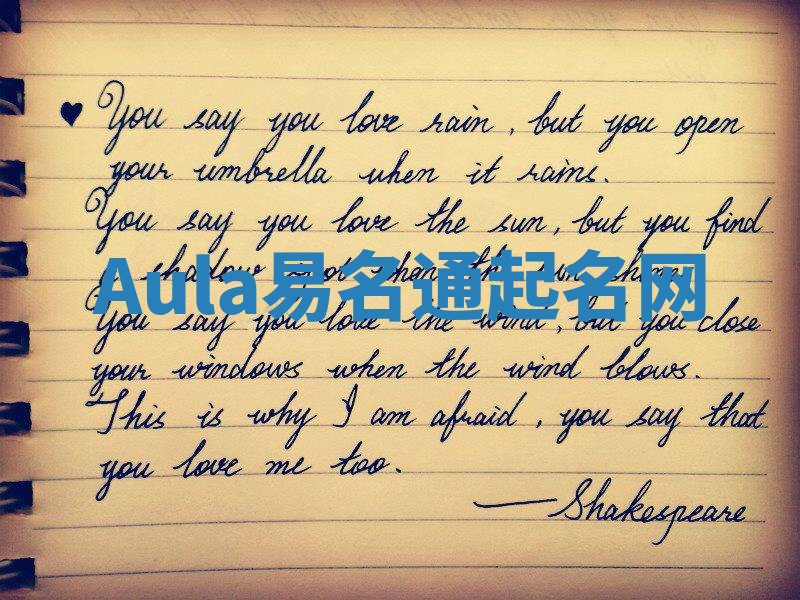 ♥ You say you love rain, but you open
your umbrella when it rains.
You say you love the sun, but you find
a shadow spot when the sun shines.
Aula易名通起名网
You say you love the wind, but you close
your windows when the wind blows.
This is why I am afraid, you say that
you love me too.
— Shakespeare